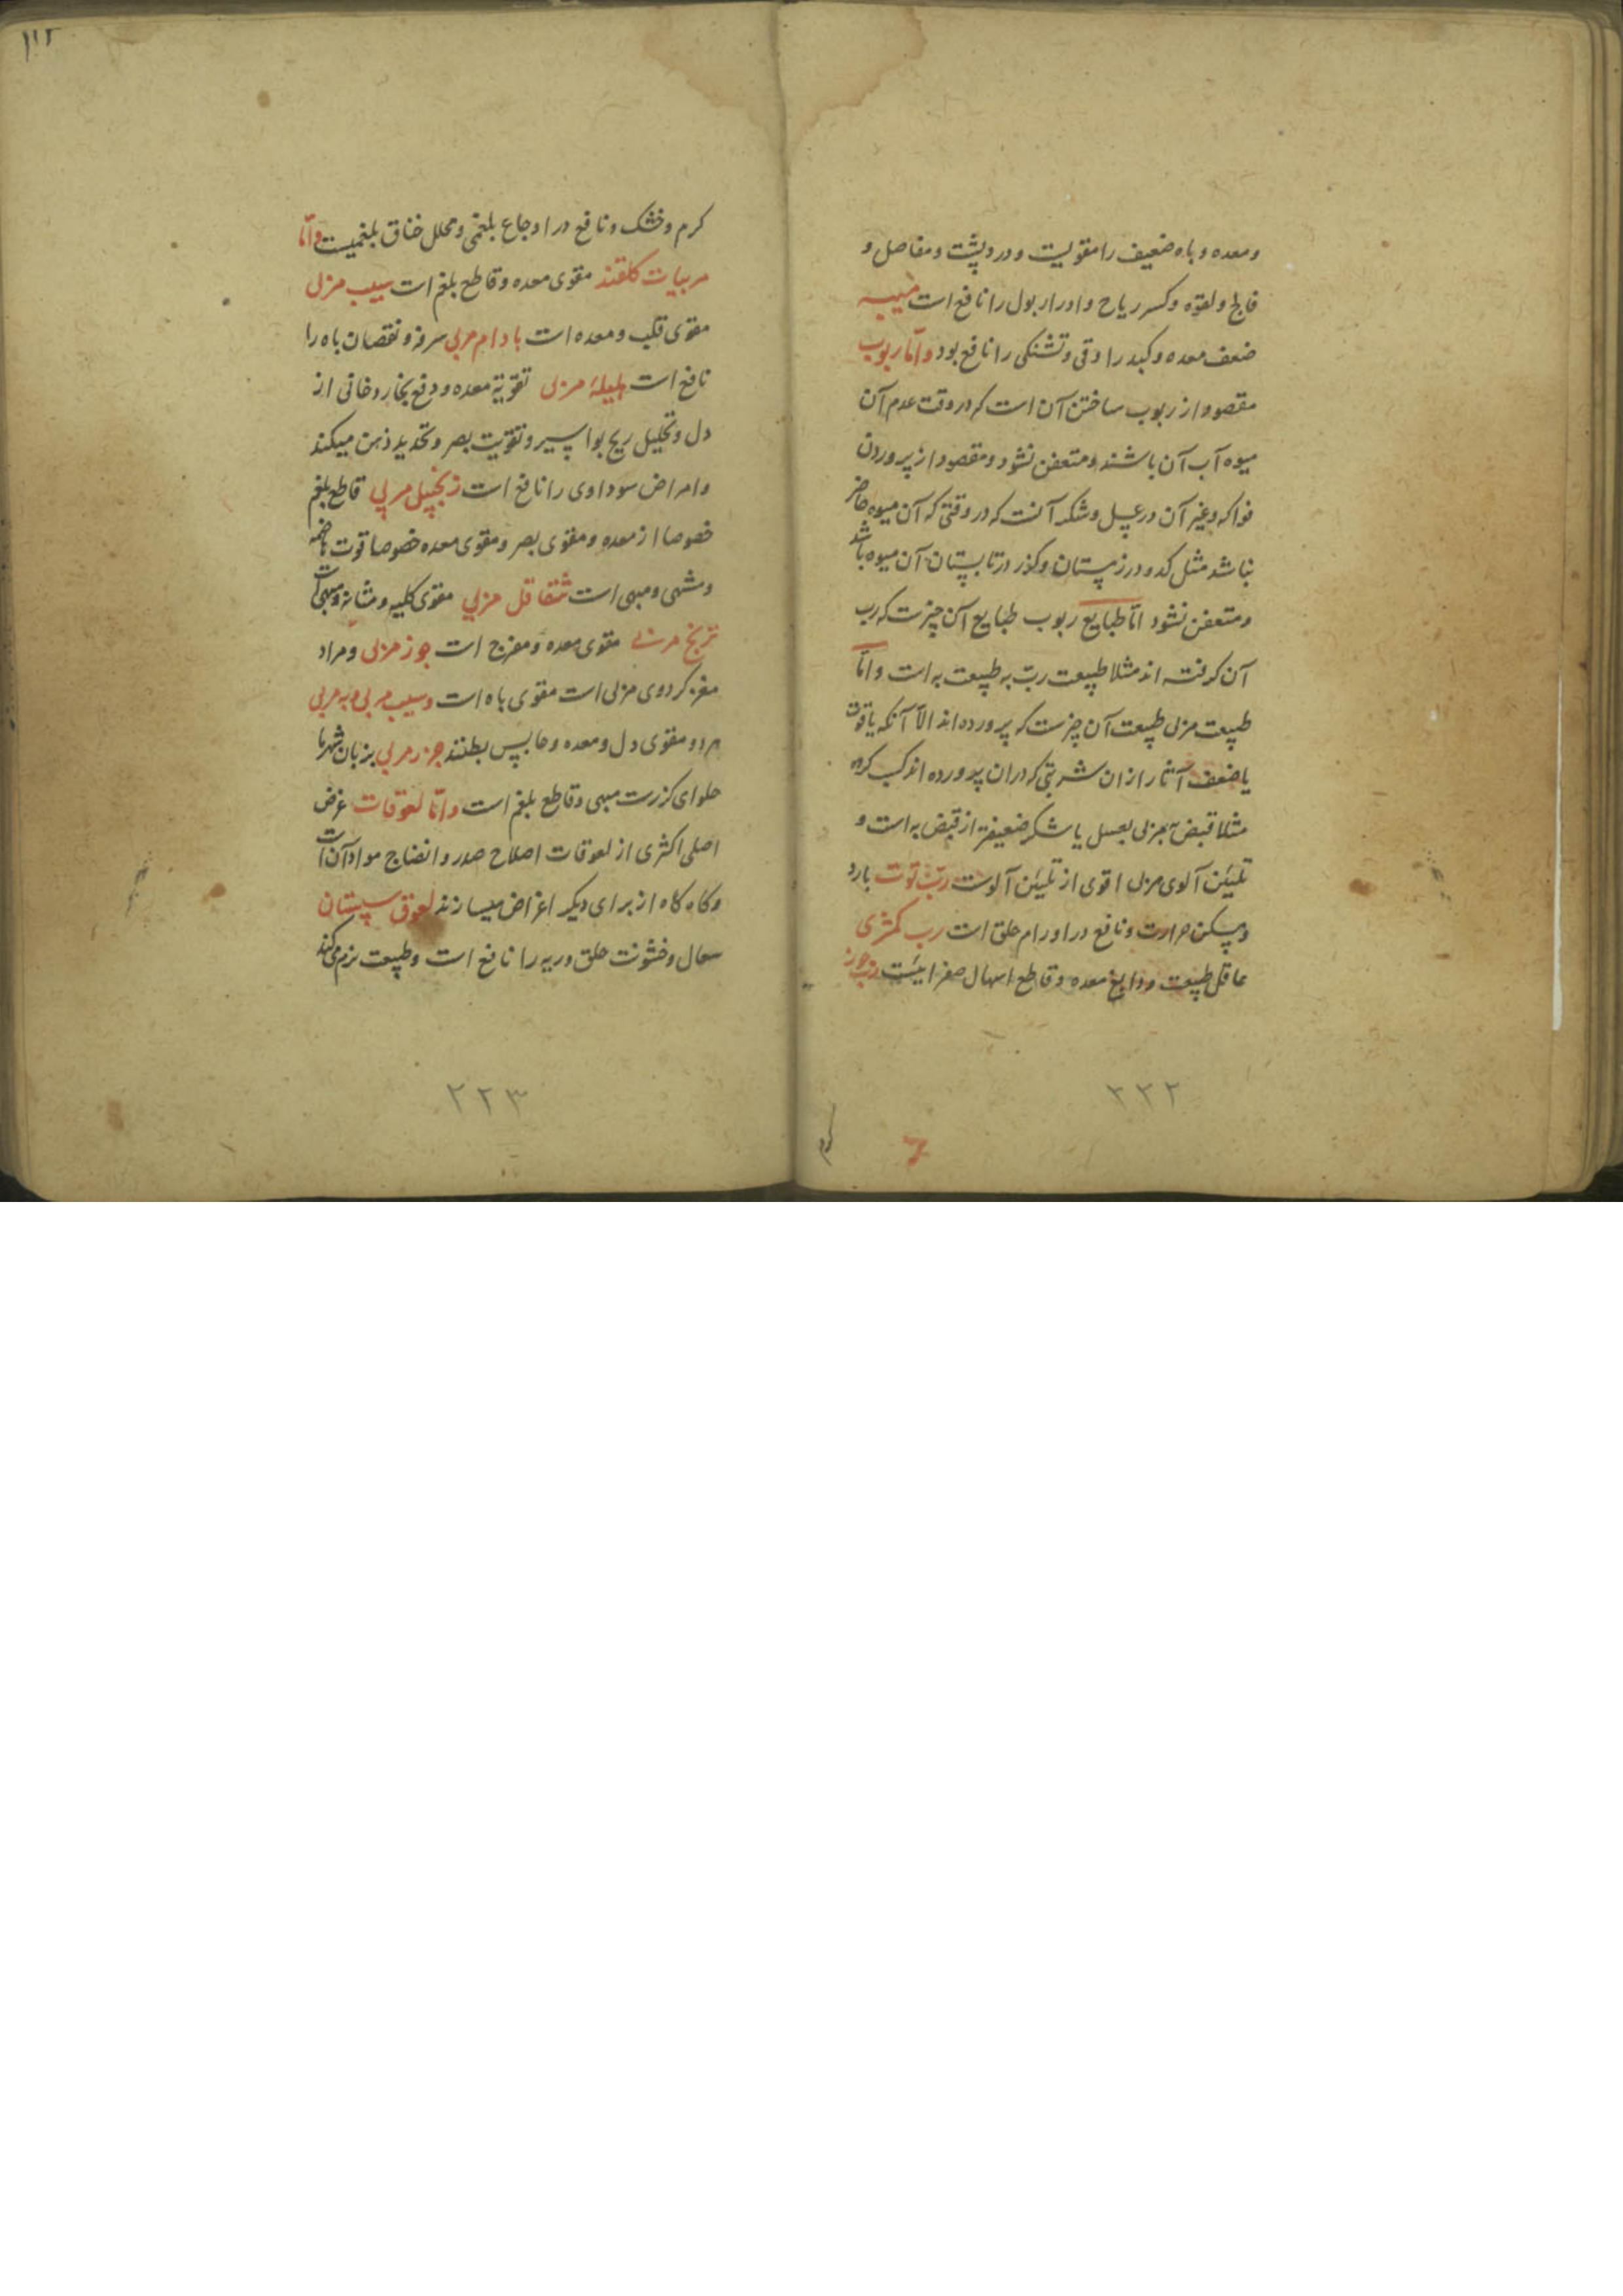 ومعده و باه ضعیف را مقویست و درد پشت و مفاصل و
فالج و لقوه و کسر ریاح و ادرار بول را نافع است میبه
ضعف معده و کبد را و قی و تشنکی را نافع بود و اما ربوب
مقصود از ربوب ساختن آن است که در وقت عدم آن
میوه آب آن باشند و متعفن نشود و مقصود از پروردن
فواکه و غیر آن در عسل و شکر آنست که در وقتی که آن میوه حاضر
نباشد مثل کدو در زمستان و کذر در تابستان آن میوه باشد
و متعفن نشود اما طبایع ربوب طبایع آن چیزست که رب
آن کرفته اند مثلا طبیعت رب به طبیعت به است و اما
طبیعت مربی طبیعت آن چیزست که پرورده اند الا آنکه یا قوت
یا ضعف آثار از ان شربتی که دران پرورده اند کسب کرده
مثلا قبض به مربی بعسل یا شکر ضعیفتر از قبض به است و
تلیین آلوی مربی اقوی از تلیین آلوست رب توت بارد
و مسکن حرارت و نافع در اورام حلق است رب کمثری
عاقل طبیعت و دابغ معده و قاطع اسهال صفراییست رب جوز
۲۲۲
کرم
۱۱۲
کرم و خشک و نافع در اوجاع بلغمی و محلل خناق بلغمیست و اما
مربیات کلقند مقوی معده و قاطع بلغم است سیب مربی
مقوی قلب و معده است بادام مربی سرفه و نقصان باه را
نافع است هلیلهٔ مربی تقویة معده و دفع بخار دخانی از
دل و تحلیل ریح بواسیر و تقویت بصر و تحدید ذهن میکند
و امراض سوداوی را نافع است زنجبیل مربی قاطع بلغم
خصوصا از معده و مقوی بصر و مقوی معده خصوصا قوت هاضمه
و مشهی و مبهی است شقاقل مربی مقوی کلیه و مثانه و مبهی است
ترنج مربی مقوی معده و مفرح است جوز مربی و مراد
مغز کردوی مربی است مقوی باه است و سیب مربی و به مربی
هر دو مقوی دل و معده و حابس بطنند جزر مربی بزبان شهرما
حلوای کزرست مبهی و قاطع بلغم است و اما لعوقات غرض
اصلی اکثری از لعوقات اصلاح صدر و انضاج مواد آن است
و کاه کاه از برای دیکر اغراض میسازند لعوق سپستان
سعال و خشونت حلق و ریه را نافع است و طبیعت نرم میکند
۲۲۳